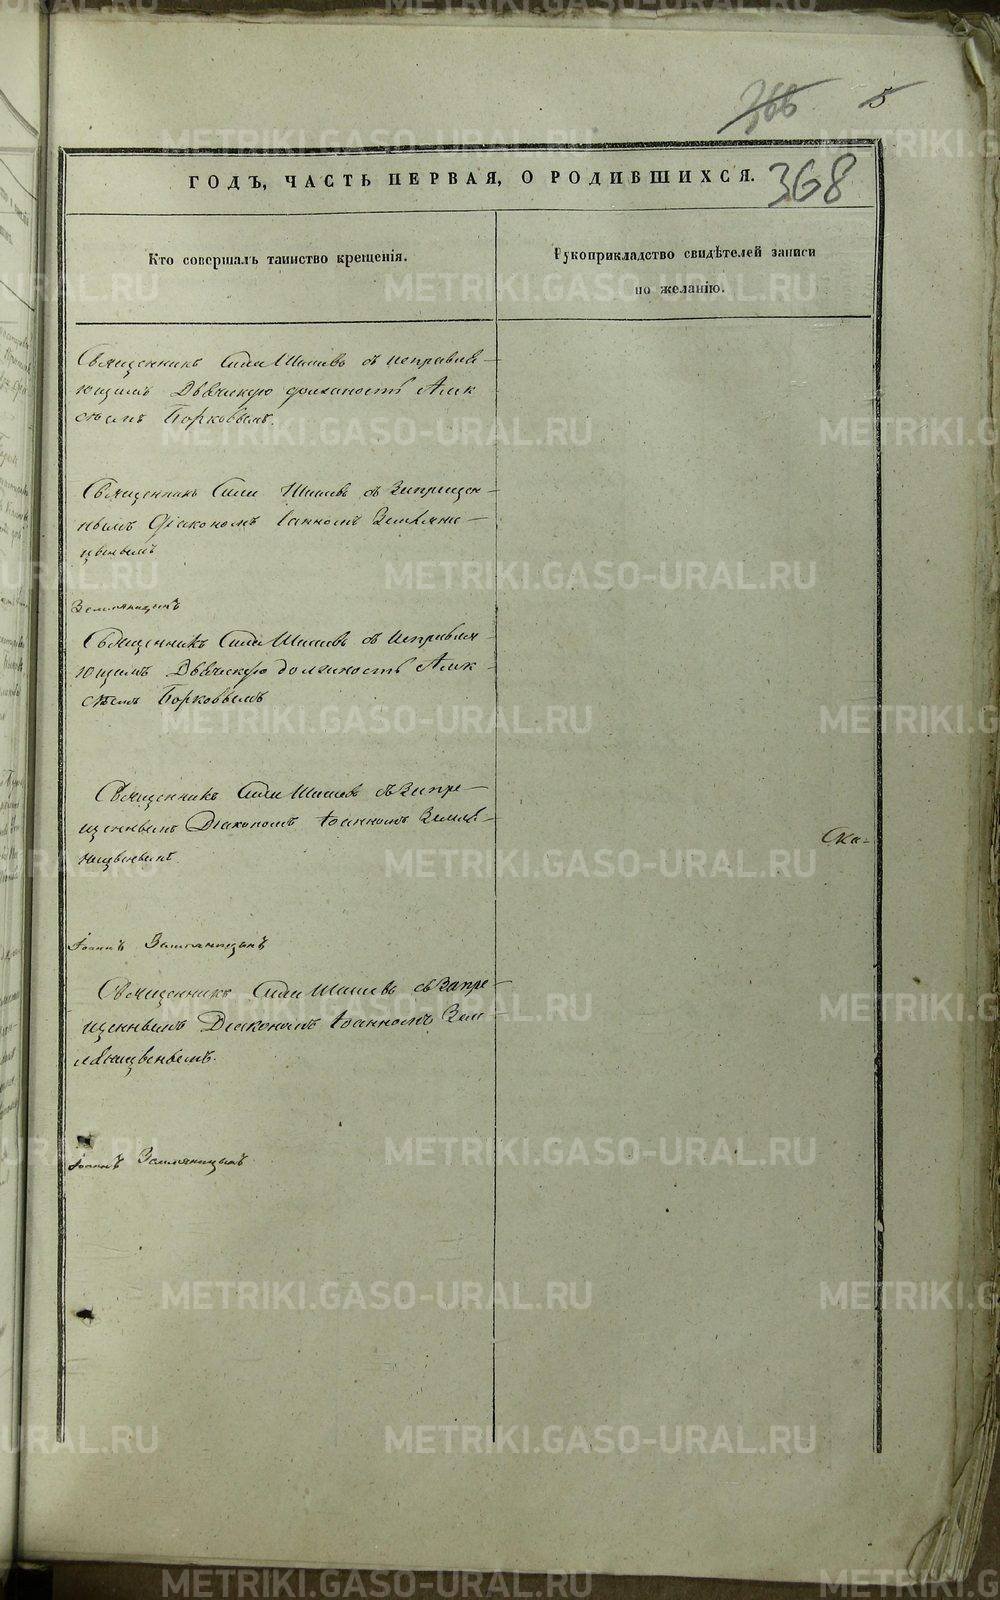 366 5
368
ГОДЪ, ЧАСТЬ ПЕРВАЯ, О РОДИВШИХСЯ.
Кто совершалъ таинство крещенія.
Рукоприкладство свидѣтелей записи
по желанію.
Священникъ Сила Шишевъ съ исправля-
ющимъ Дьяческую должность Алек-
сѣемъ Борковымъ.
Священникъ Сила Шишевъ съ Запрещен-
нымъ Діакономъ Іанномъ Землянi-
цынымъ
Земляницынъ
Священникъ Сила Шишевъ съ исправля-
ющимъ Дьяческую должность Алек-
сѣемъ Борковымъ
Священникъ Сила Шишевъ съ Запре-
щеннымъ Діакономъ Іоанномъ Земля-
ницынымъ.
Ска-
Іоаннъ Земляницынъ
Священникъ Сила Шишевъ съ Запре-
щеннымъ Діакономъ Іоанномъ Зем-
ляницынымъ.
Іоаннъ Земляницынъ
METRIKI.GASO-URAL.RU